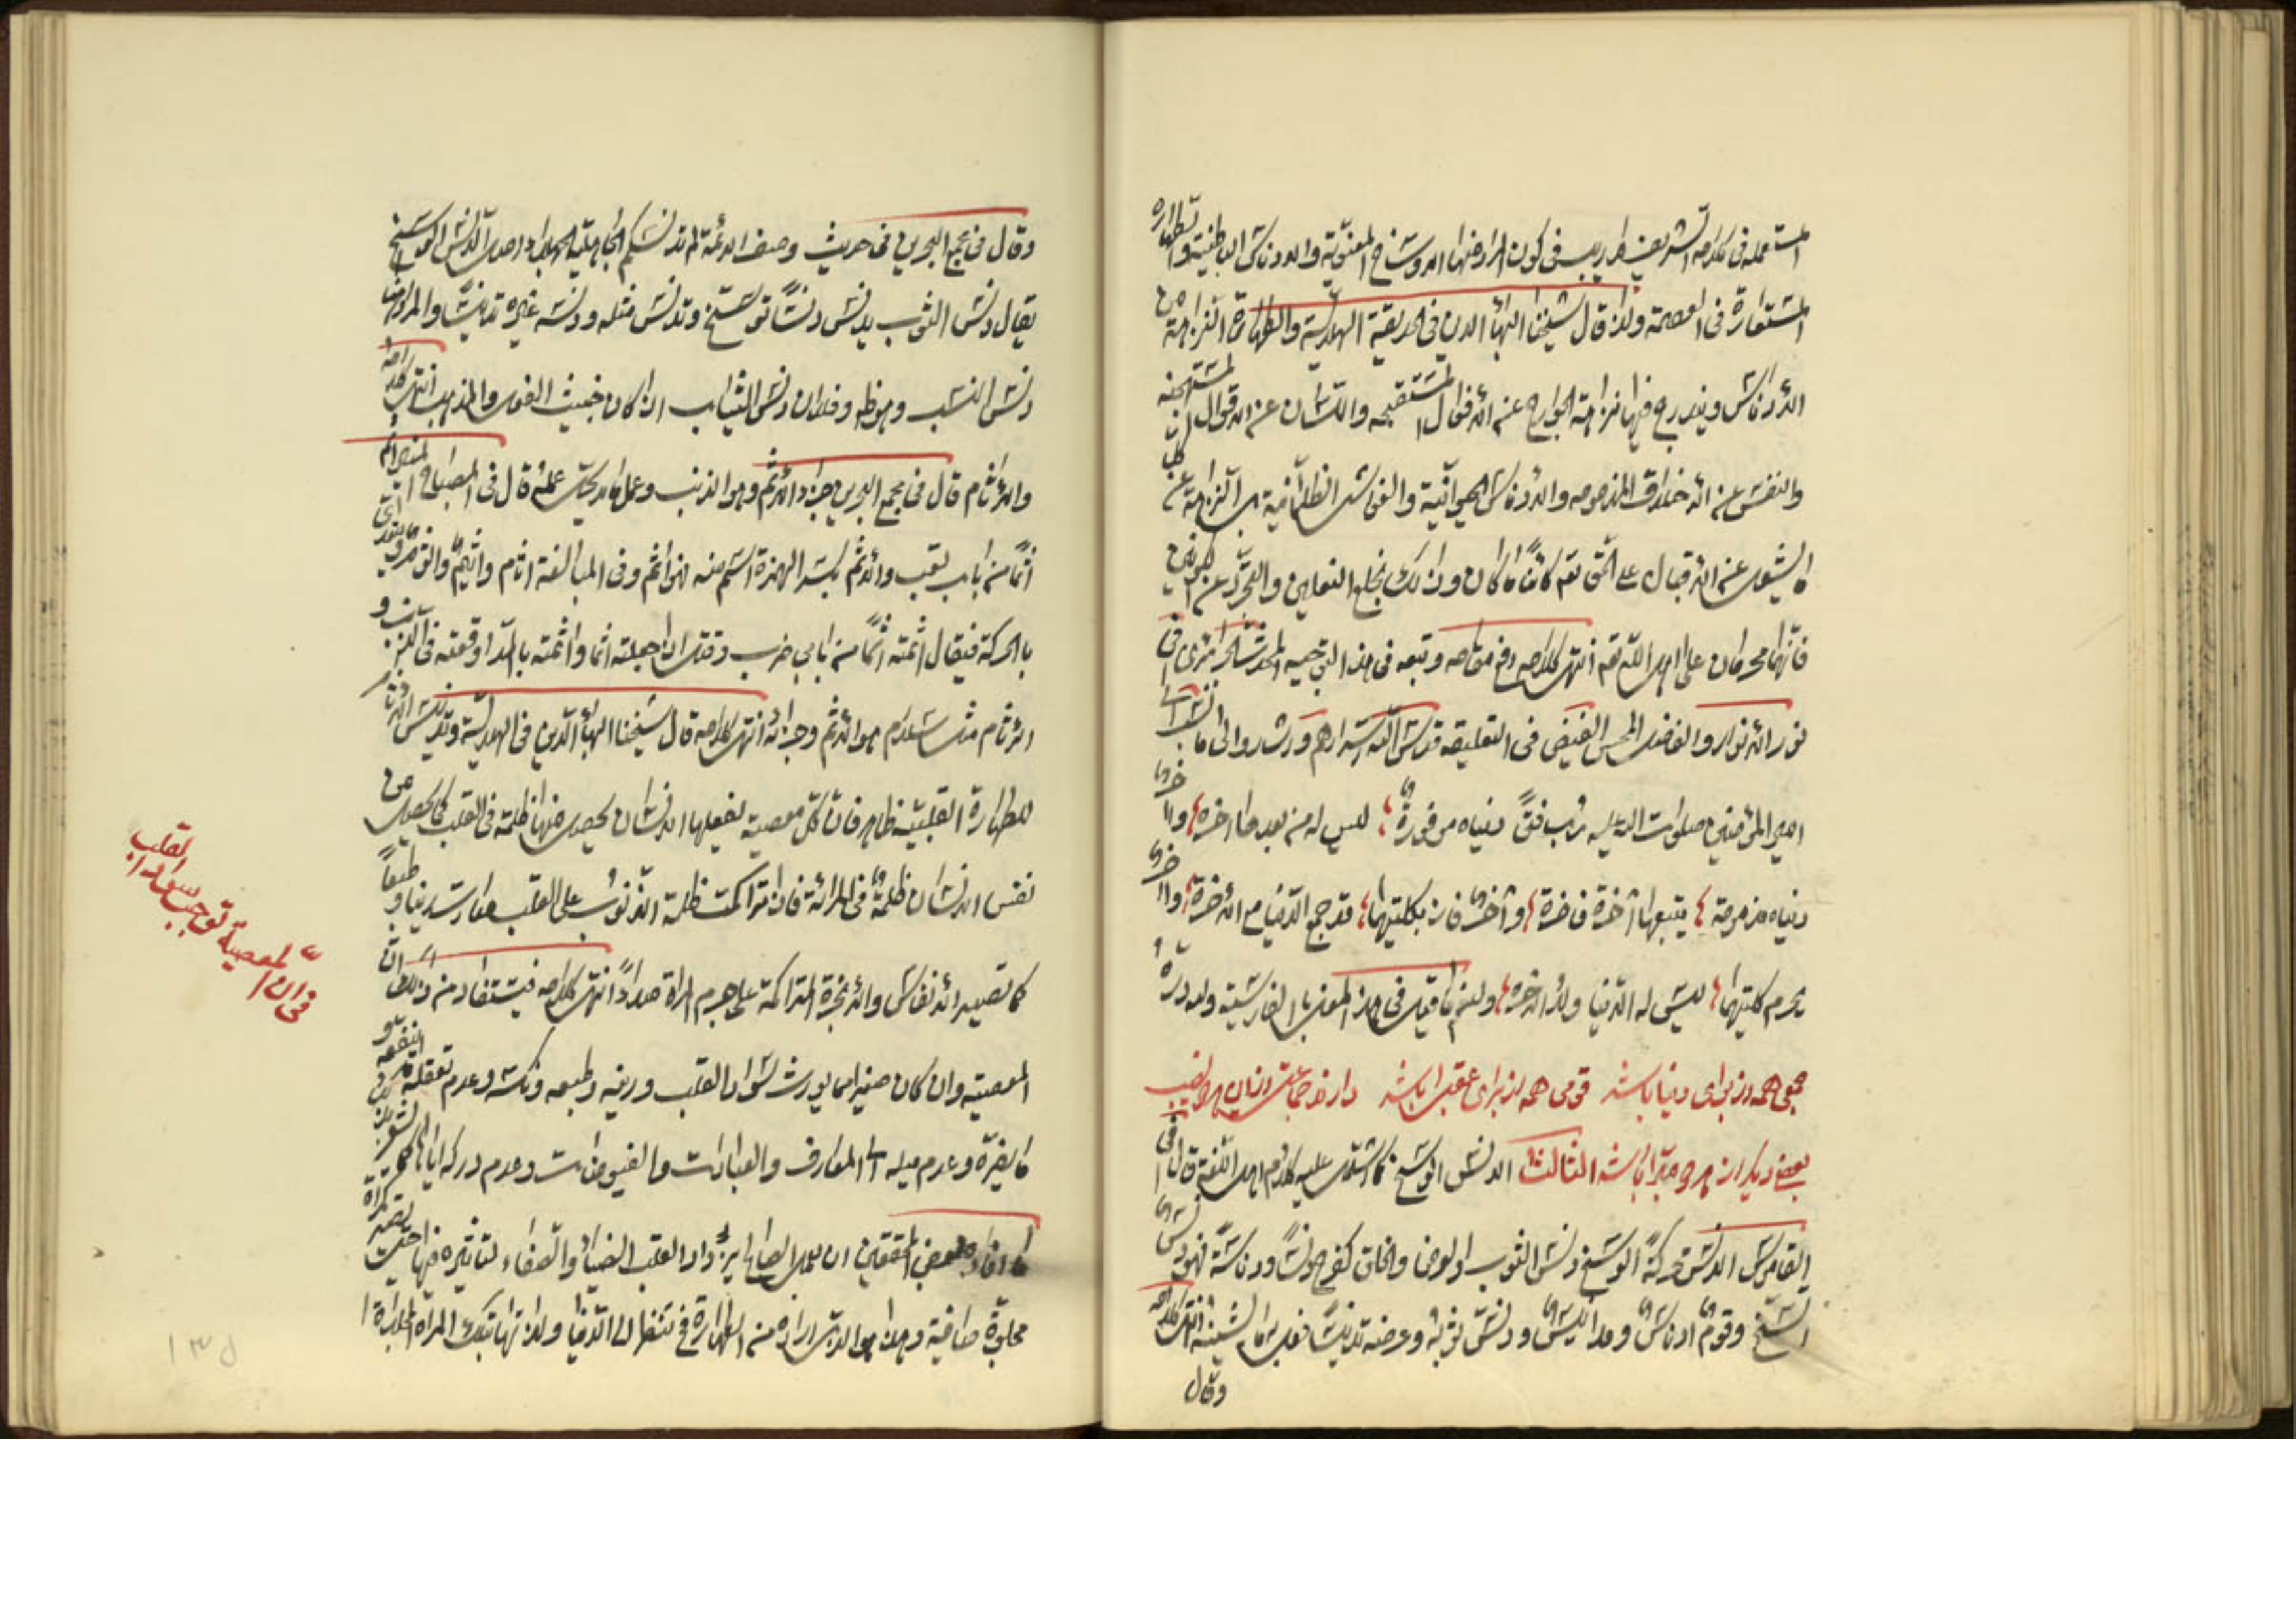 المستعملة في كلامه الشريف لا ريب في كون المراد منها الاوساخ المعنوية والادناس الباطنية والطهارة
المستعارة في العصمة ولذا قال شيخنا البهائي الدين في الحديقة الهلالية والطهارة النزاهة من
الأدناس ويندرج فيها نزاهة الجوارح عن الأفعال المستقبحه واللسان عن الاقوال المستهجنه
والنفس عن الأخلاق المذمومه والأدناس الجسمانية والغواشي الظلمانية بل النزاهة عن كل
ما يشغل عن الاقبال على الحق تع كائنا ما كان وذلك بخلع النعلين والتجرد عن الكونين
فانهما محرمان على اهل الله تع انتهى كلامه رفع مقامه وتبعه في هذا التوجيه المحدث الجزائري في
نور الأنوار والفاضل المحسن الفيض في التعليقة قدس الله اسرارهم واشاروا الى ما نسب الى
امير المؤمنين صلوات الله عليه رب فتى دنياه موفورة ؛ ليس له من بعدها اخره ؛ واخرى
دنياه مذمومة ؛ يتبعها آخرة فاخرة ؛ وآخر فاز بكلتيهما ؛ قد جمع الدنيا مع الأخرة ؛ واخرى
يحرم كلتيهما ؛ ليس له الدنيا ولا الاخره ؛ ولنعم ما قيل في هذا المعنى بالفارسية ولله دره
جمعى همه از براى دنيا باشد قومى همه از براى عقبى باشد دارند جماعتى از اين هر دو نصيب
بعضى ديگر از هر دو مبرا باشد الثالث الدنس الوسخ كما اشتمل عليه كلام اهل اللغة قال في
القاموس الدنس محركة الوسخ دنس الثوب والعرض والخلق كفرح دنسا ودناسة فهو دنس
اتسخ وقوم ادناس ومدانيس ودنس ثوبه وعرضه تدنيسا فعل به ما يشينه انتهى كلامه
وقال
وقال في مجمع البحرين في حديث وصف الائمة لم تدنسكم الجاهلية الجهلاء اصل الدنس الوسخ
يقال دنس الثوب يدنس دنسا توسخ وتدنس مثله ودنسه غيره تدنيسا والمراد هنا
دنس النسب وهو ظ وفلان دنس الثياب اذا كان خبيث الفعل والمذهب انتهى كلامه
والأثام قال في مجمع البحرين جزاء الأثم وهو الذنب وعمل ما لا يحل عمله قال في المصباح اثم
اثما من باب تعب والأثم بكسر الهمزة اسم منه فهو اثم وفي المبالغة اثام واثيم واثوم ويعدى
بالحركة فيقال اثمته اثما من بابي ضرب وقتل اذا جعلته اثما وآثمته بالمد اوقعته في الذنب و
الأثام مثل سلام هو الأثم وجزائه انتهى كلامه قال شيخنا البهائي الدين في الهلالية وتدنيس الآثام
للطهارة القلبية ظاهر فان كل معصية يفعلها الانسان يحصل منها ظلمة في القلب كما يحصل من
نفس الانسان ظلمة في المرآة فاذا تراكمت ظلمة الذنوب على القلب صارت رينا وطبعا
كما تصير الأنفاس والأبخرة المتراكمة على جرم المرآة صدأ انتهى كلامه فيستفاد من ذلك ان
المعصية وان كان صغيرا مما يورث سواد القلب ورينه وطبعه ونكسه وعدم تعقله ما ينفعه و
ما يضره وعدم ميله الى المعارف والعبادات والفيوضات وعدم دركه اياها
كما افاده بعض المحققين ان عمل الصالح يزداد القلب الضياء والصفاء لتأثيره فيها حتى تصير كمرآة
مجلوة صافية وهذا هو الذي اراده من الطهارة فح تنظر الى الدنيا ولذاتها بتلك المرآة المجلوة
في ان المعصية توجب سواد القلب